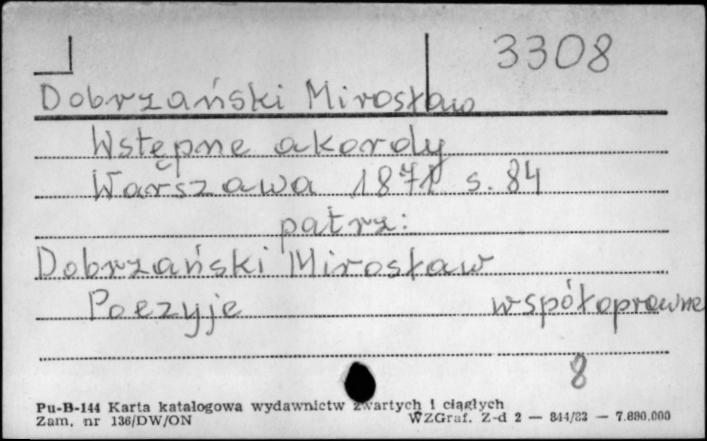 3308
Dobrzański Mirosław
Wstępne akordy
Warszawa 1871 s. 84
patrz:
Dobrzański Mirosław
Poezyje współoprawne
8
Pu-B-144 Karta katalogowa wydawnictw zwartych i ciągłych
Zam. nr 136/DW/ON WZGraf. Z-d 2 — 844/83 — 7.680.000